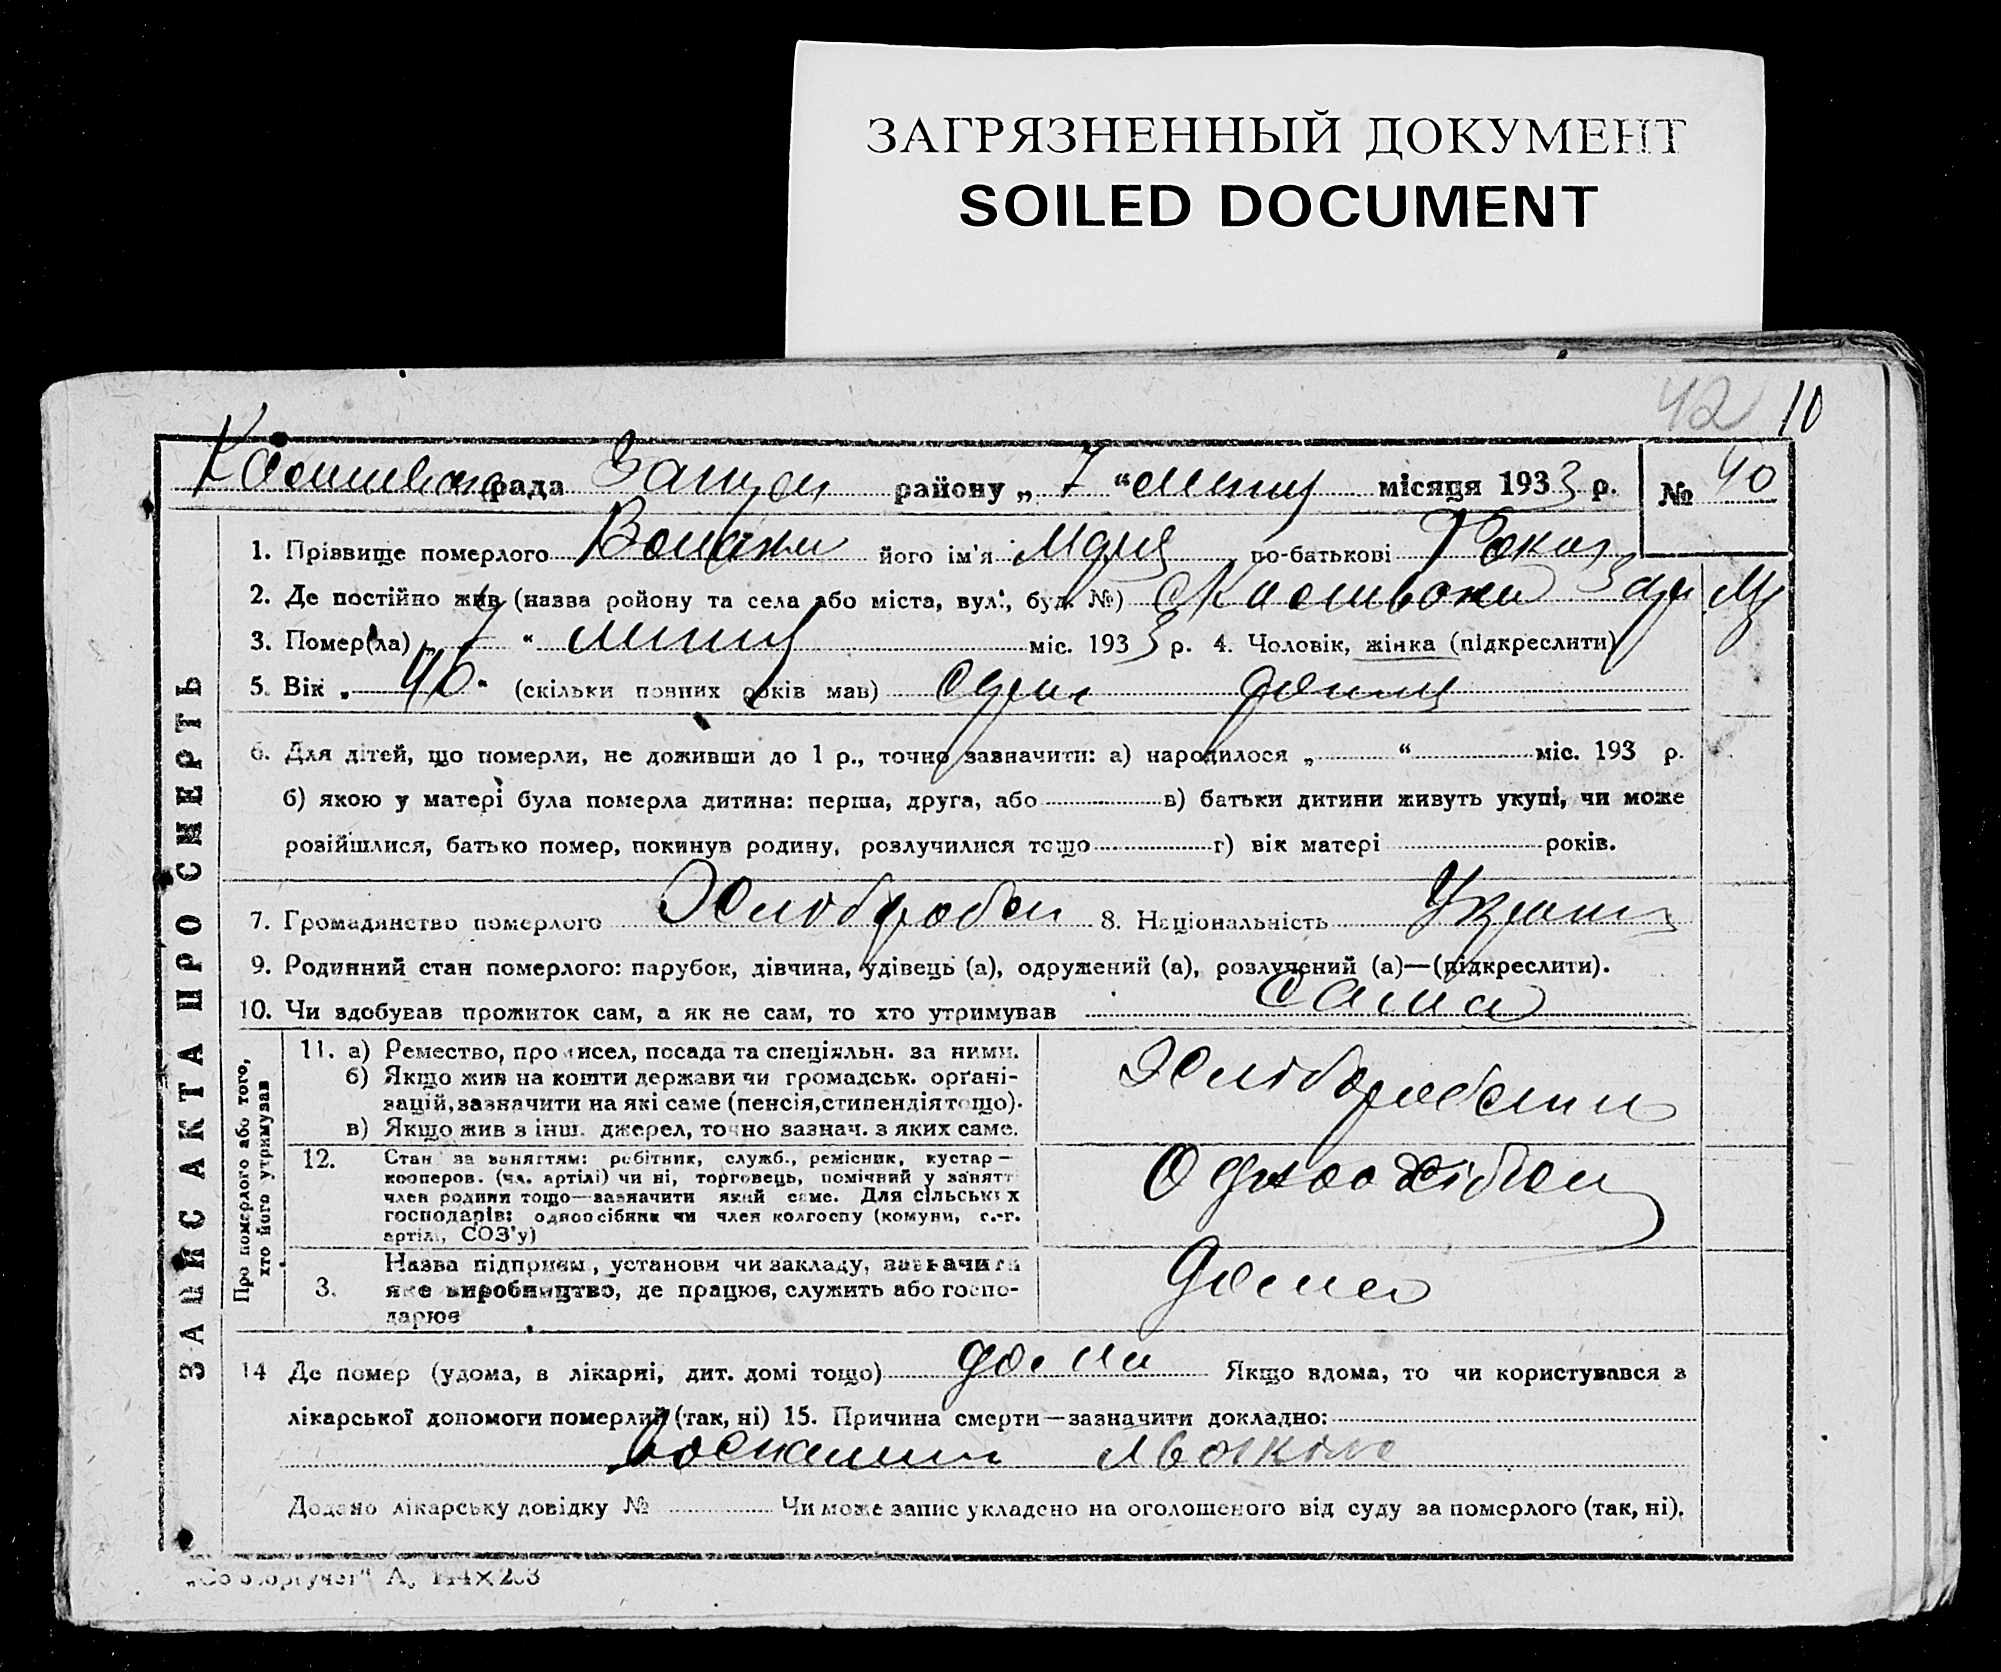 ЗАГРЯЗНЕННЫЙ ДОКУМЕНТ
SOILED DOCUMENT
42 10
рада району „ 7 “ липця місяця 1933 р. № 40
1. Прізвище померлого його ім'я Марія по-батькові
2. Де постійно жив (назва ройону та села або міста, вул., буд. №)
3. Помер(ла) „ 7 “ липця міс. 1933 р. 4. Чоловік, жінка (підкреслити)
5. Вік „ 46 “ (скільки повних років мав)
6. Для дітей, що померли, не доживши до 1 р., точно зазначити: а) народилося „ “ міс. 193 р.
б) якою у матері була померла дитина: перша, друга, або в) батьки дитини живуть укупі, чи може
розійшлися, батько помер, покинув родину, розлучилися тощо г) вік матері років.
7. Громадянство померлого Хліборобка 8. Національність
9. Родинний стан померлого: парубок, дівчина, удівець (а), одружений (а), розлучений (а)—(підкреслити).
10. Чи здобував прожиток сам, а як не сам, то хто утримував сама
ЗАПИС АКТА ПРО СМЕРТЬ
Про померлого або того,
хто його утримував
11. а) Ремество, промисел, посада та спеціяльн. за ними.
б) Якщо жив на кошти держави чи громадськ. органі-
зацій, зазначити на які саме (пенсія, стипендія тощо).
в) Якщо жив з інш. джерел, точно зазнач. з яких саме.
12. Стан за заняттям: робітник, служб., ремісник, кустар—
кооперов. (чл. артілі) чи ні, торговець, помічний у занятт
член родини тощо—зазначити який саме. Для сільських
господарів: одноосібник чи член колгоспу (комуни, с.-г.
артілі, СОЗ'у)
3. Назва підприєм., установи чи закладу, зазначити
яке виробництво, де працює, служить або госпо-
дарює
дома
14 Де помер (удома, в лікарні, дит. домі тощо) дома Якщо вдома, то чи користувався з
лікарської допомоги померлий (так, ні) 15. Причина смерти—зазначити докладно:
Додано лікарську довідку № Чи може запис укладено на оголошеного від суду за померлого (так, ні).